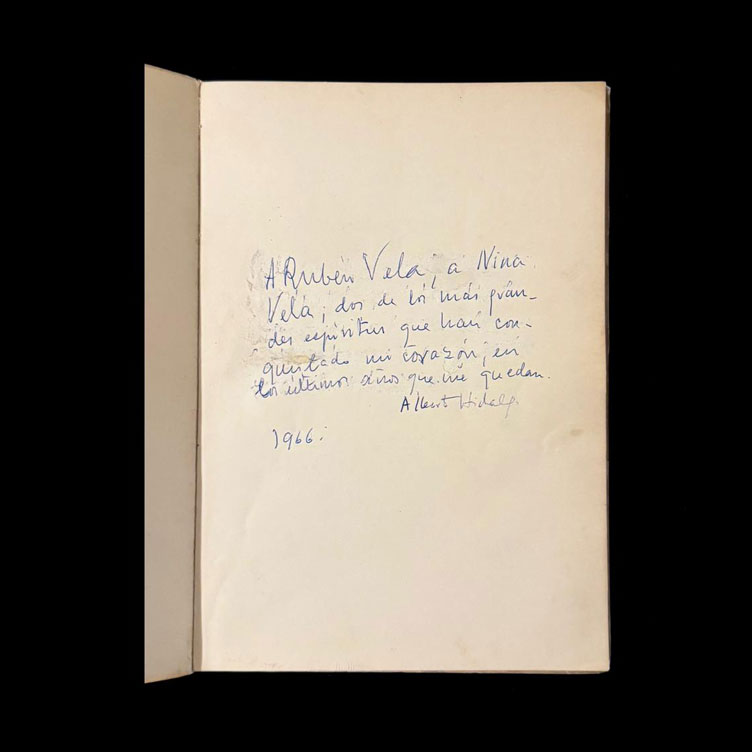 A Rubén Vela, a Nina
Vela, dos de los más gran-
des espíritus que han con-
quistado mi corazón, en
los últimos años que me quedan.
Albert Hidalgo
1966.